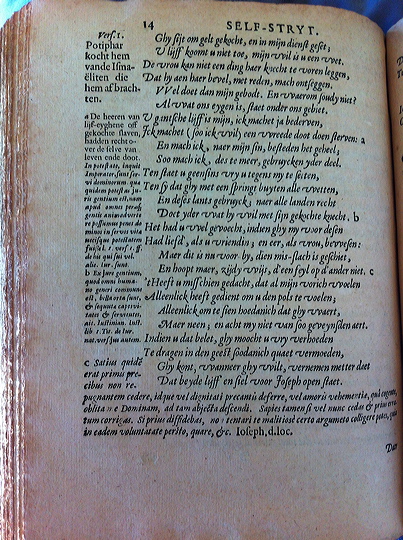 14 SELF-STRYT.
Vers. 1.
Potiphar
kocht hem
vande Isma-
ëliten die
hem afbrach-
ten.
a De heeren van
lijf-eyghene oft
gekochte slaven,
hadden recht o-
ver de selve van
leven ende doot.
In potestate, inquit
Imperator, sunt ser-
vi dominorum. quæ
quidem potestas ju-
ris gentium est, nam
apud omnes peræ-
que gentis animadverte-
re possumus penes do-
minos in servos vitæ
necisque potestatem
fuisse. l. 1. ff.
de his qui sui vel.
alie. iur. sunt.
b Ex jure gentium,
quod omni huma-
no generi commune
est, bella orta sunt,
& sequuta captivi-
tates & servitutes.
ait. Iustinian. Inst.
lib. 1. Tit. de Iur.
nat. versf. jus autem.
c Satius quidē
erat primū pre-
cibus non re-
Ghy sijt om gelt gekocht, en in mijn dienst geset;
U lijff koomt u niet toe, mijn wil is u een wet.
De vrou kan niet een ding haer knecht te voren leggen,
Dat hy aen haer bevel, met reden, mach ontseggen.
Wel doet dan mijn gebodt. En waerom soudy niet?
Al wat ons eygen is, staet onder ons gebiet.
U gantsche lijff is mijn, ick mach et ja bederven,
Ick mach et (soo ick wil) een wreede doot doen sterven: a
En mach ick, naer mijn sin, besteden het geheel;
Soo mach ick, des te meer, gebruycken yder deel.
Ten staet u geensins vry u tegens my te setten,
Ten sy dat ghy met een springt buyten alle wetten,
En deses lants gebruyck, naer alle landen recht
Doet yder wat hy wil met sijn gekochte knecht. b
Het had u wel gevoecht, indien ghy my voor desen
Had liefd', als u vriendin; en eer, als vrou, bewesen:
Maer dit is nu voor by, dien mis-slach is geschiet,
En hoopt maer, zijdy wijs, d'een feyl op d'ander niet. c
't Heeft u misschien gedacht, dat al mijn vorich woelen
Alleenlick heeft gedient om u den pols te voelen;
Alleenlick om te sien hoedanich dat ghy waert,
Maer neen; en acht my niet van soo geveynsden aert.
Indien u dat belet, ghy moocht u wy verhoeden
Te dragen in den geest soodanich quaet vermoeden,
Ghy kont, wanneer ghy wilt, vernemen metter daet
Dat beyde lijff en siel voor Joseph open staet.
pugnantem cedere, idque vel dignitati precantis deferre, vel amoris vehementiæ, quâ cogente,
oblita me Dominam, ad tam abjecta descendi. Sapies tamen si vel nunc cedas & prius erra-
tum corrigas. Si prius diffidebas, no tentari te malitiosè certo argumēto colligere potes,
in eadem voluntate persto, quare, &c. Ioseph, d. loc.